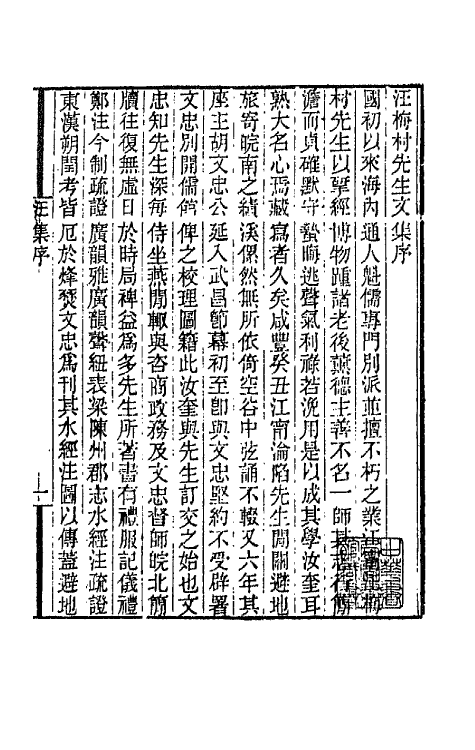 汪梅村先生文集序
國初以來海內通人魁儒專門別派並擅不朽之業江甯汪梅
村先生以窮經博物踵諸老後薰德主善不名一師其志行簡
澹而貞確默守蟄晦逃聲氣利祿若浼用是以成其學汝奎耳
熟大名心焉藏寫者久矣咸豐癸丑江甯淪陷先生閒關避地
旅寄皖南之績溪傫然無所依倚空谷中弦誦不輟又六年其
座主胡文忠公延入武昌節幕初至卽與文忠堅約不受辟署
文忠別開儒館俾之校理圖籍此汝奎與先生訂交之始也文
忠知先生深每侍坐燕閒輒與咨商政務及文忠督師皖北簡
牘往復無虛日於時局裨益爲多先生所著書有禮服記儀禮
鄭注今制疏證廣韻雅廣韻聲紐表梁陳州郡志水經注疏證
東漢朔閏考皆厄於烽燹文忠爲刊其水經注圖以傳蓋避地
汪集序
一